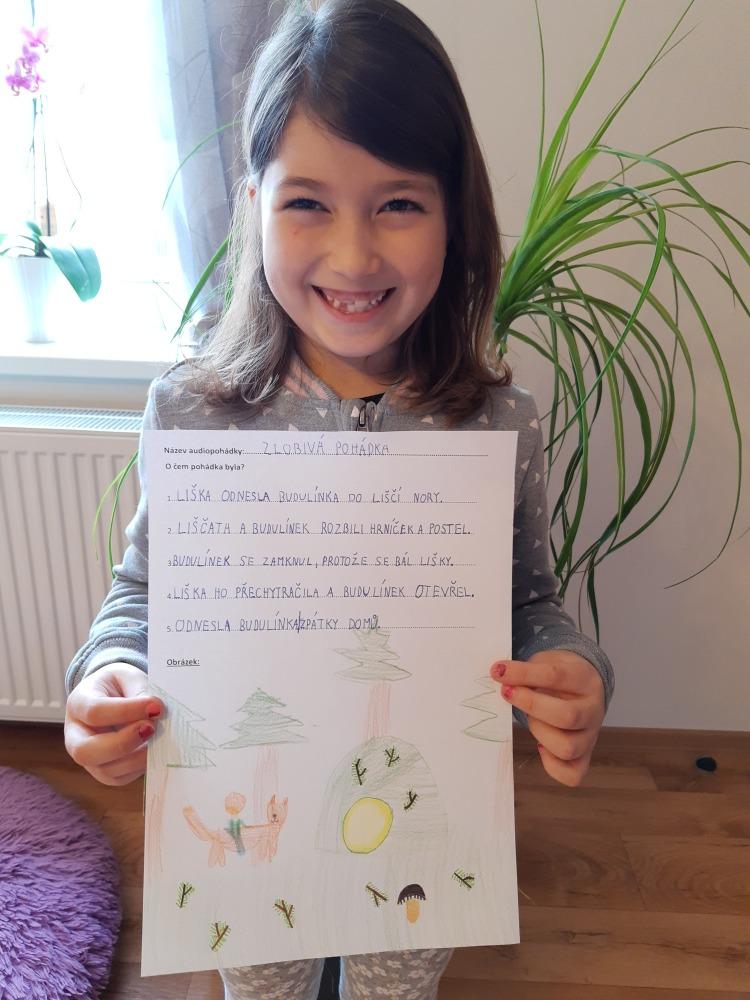 Název audiopohádky: ZLOBIVÁ POHÁDKA
O čem pohádka byla?
1. LIŠKA ODNESLA BUDULÍNKA DO LIŠČÍ NORY.
2. LIŠČATA A BUDULÍNEK ROZBILI HRNÍČEK A POSTEL.
3. BUDULÍNEK SE ZAMKNUL, PROTOŽE SE BÁL LIŠKY.
4. LIŠKA HO PŘECHYTRAČILA A BUDULÍNEK OTEVŘEL.
5. ODNESLA BUDULÍNKA ZPÁTKY DOMŮ.
Obrázek: